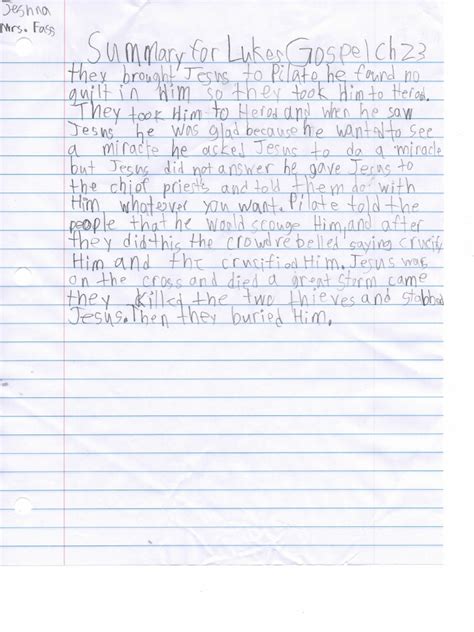 Jeshna
Mrs. Fass
Summary for Lukes Gospel Ch 23
they brought Jesus to Pilate he found no
guilt in him so they took Him to Herod.
They took Him to Herod and when he saw
Jesus he was glad because he wanted to see
a miracle he asked Jesus to do a miracle
but Jesus did not answer he gave Jesus to
the chiof priests and told them do with
Him whatever you want. Pilate told the
people that he would scouge Him, and after
they did this the crowd rebelled saying crucify
Him and the crucifiod Him. Jesus was
on the cross and died a great storm came
they killed the two thieves and stabbed
Jesus. Then they buried Him.